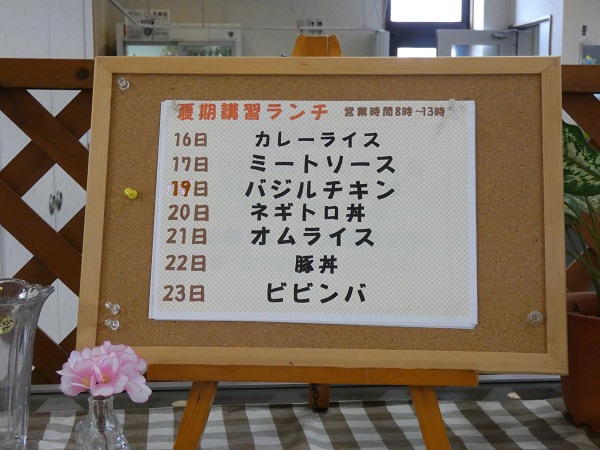 夏期講習ランチ 営業時間8時~13時
16日 カレーライス
17日 ミートソース
19日 バジルチキン
20日 ネギトロ丼
21日 オムライス
22日 豚丼
23日 ビビンバ